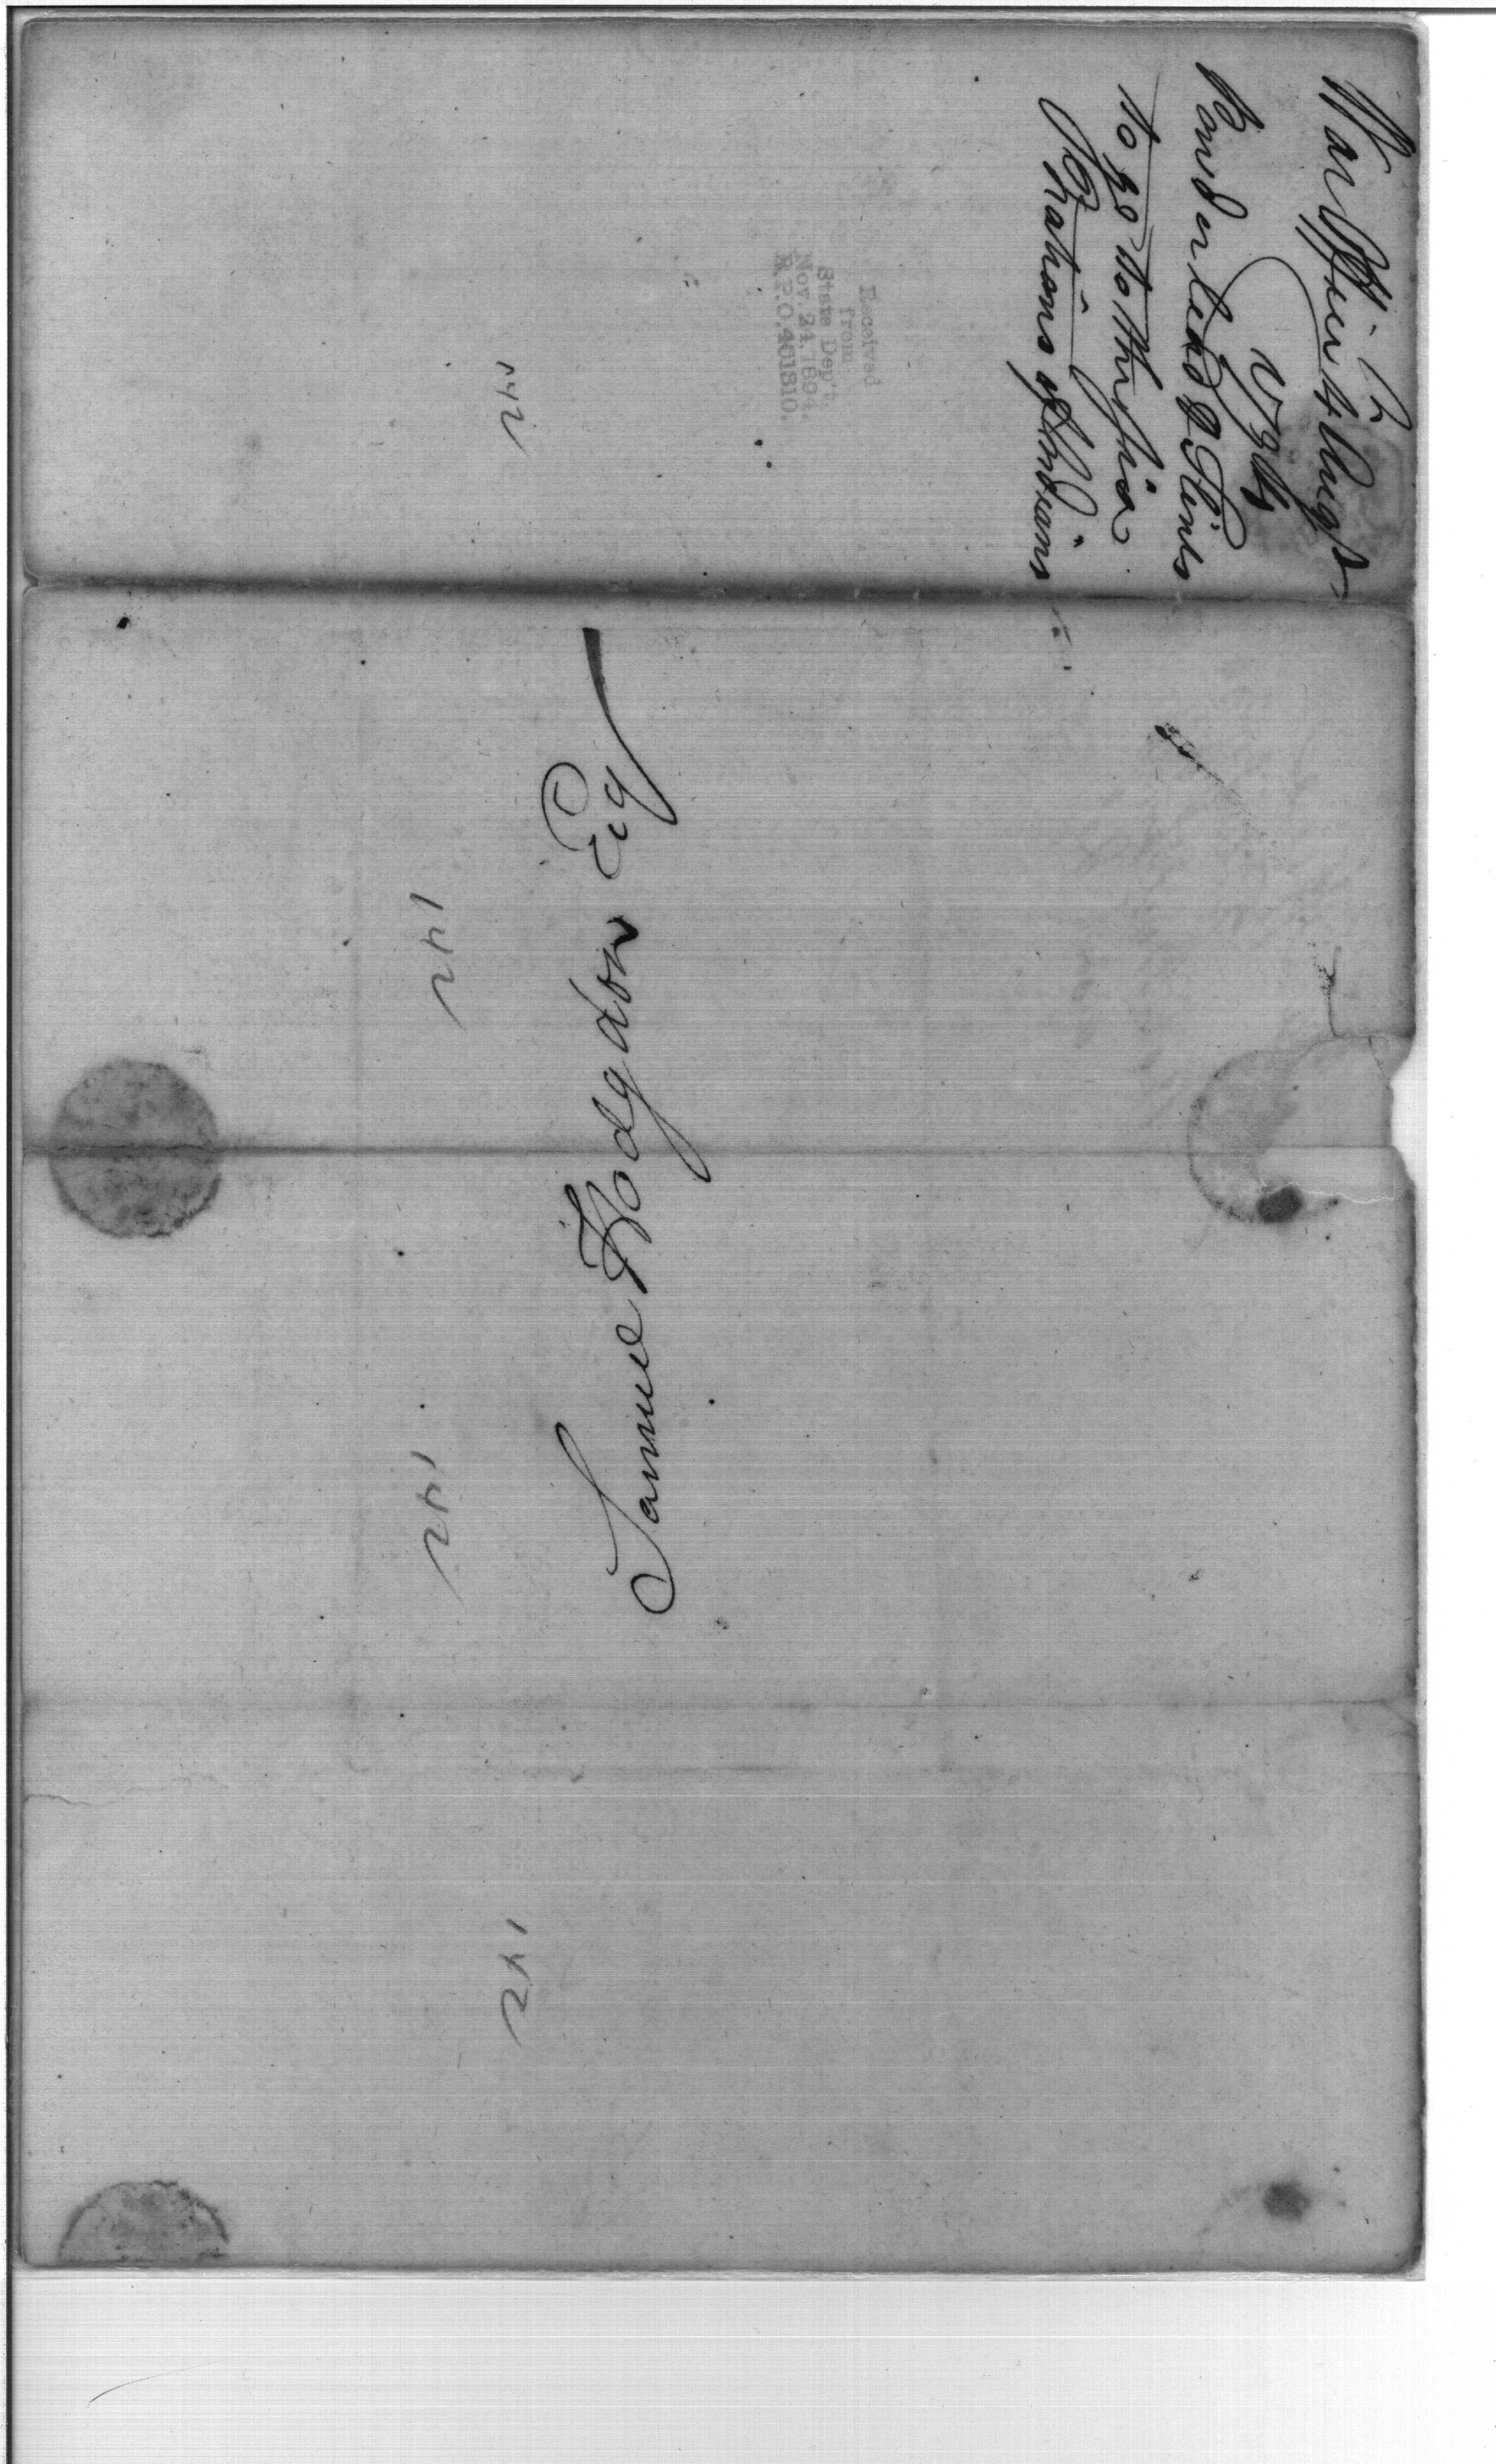 War Office 4 Augt
1794
Powder lead & Flints
to go to the six
Nations of Indians
Received
from
State Dept.
Nov. 24, 1894.
R.P.O. 401310.
Samuel Hodgdon Esq
142
142
142
142